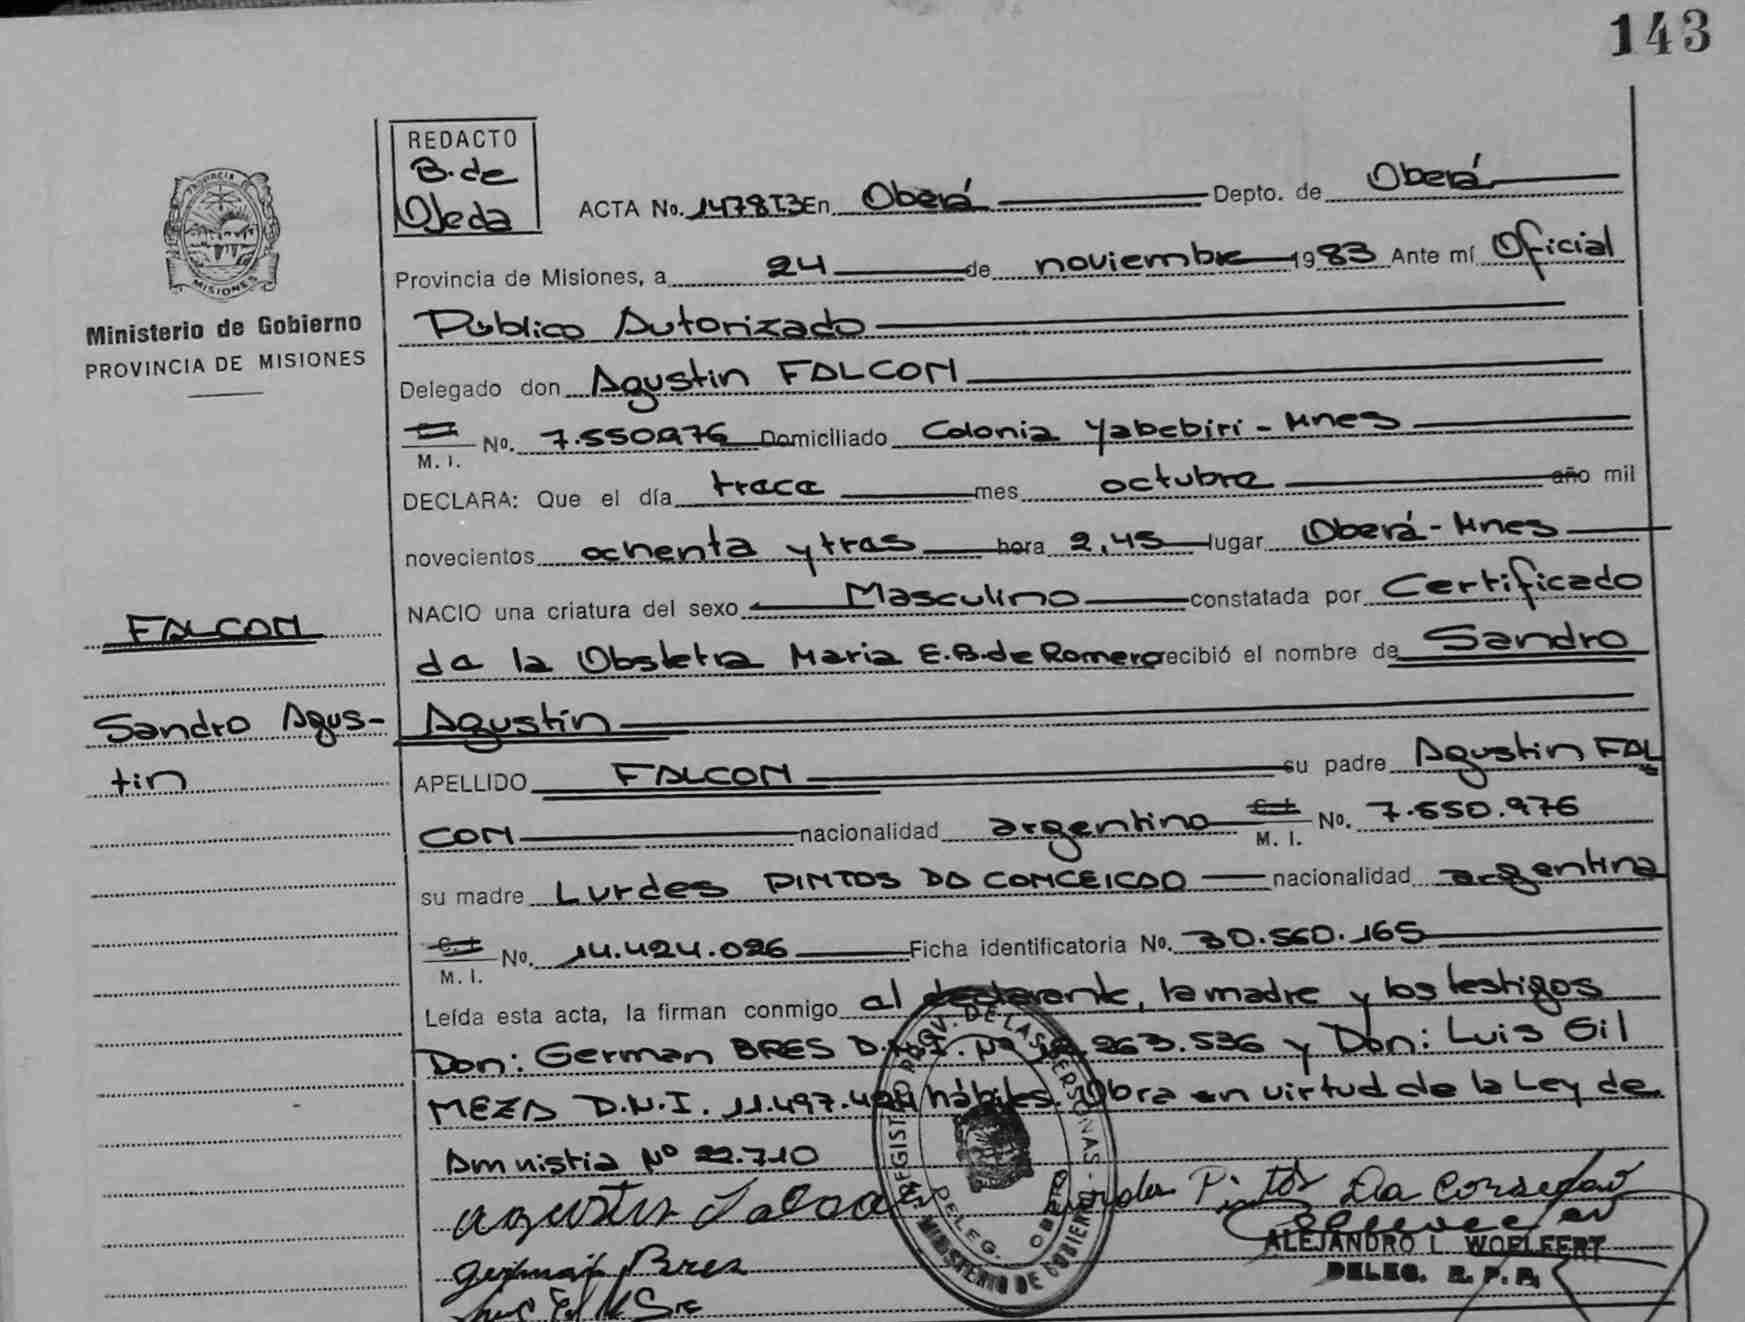 143
REDACTO
B. de
Ojeda
ACTA No. 1478T3 En Oberá Depto. de Oberá
Provincia de Misiones, a 24 de noviembre 1983 Ante mí Oficial
Público Autorizado
Delegado don Agustin FALCON
M. I. No. 7.550.976 Domiciliado Colonia Yabebiri - Mnes
DECLARA: Que el día trece mes octubre año mil
novecientos ochenta y tres hora 2,45 lugar Oberá - Mnes
NACIO una criatura del sexo Masculino constatada por Certificado
de la Obstetra Maria E. B. de Romero recibió el nombre de Sandro
Agustin
APELLIDO FALCON su padre Agustin FAL
CON nacionalidad argentino C. I. M. I. No. 7.550.976
su madre Lurdes PINTOS DA CONCEICAO nacionalidad argentina
C. I. M. I. No. 14.424.026 Ficha identificatoria No. 30.560.165
Leída esta acta, la firman conmigo el declarante, la madre y los testigos
Don: German BRES D.N.I. Nº 263.536 y Don: Luis Gil
MEZA D.N.I. 11.497. hábiles. Obra en virtud de la Ley de
Amnistia Nº 22.710
PROVINCIA DE MISIONES
Ministerio de Gobierno
PROVINCIA DE MISIONES
FALCON
Sandro Agus-
tin
REGISTRO PROV. DE LAS PERSONAS
MINISTERIO DE GOBIERNO
DELEG. OBERA
Agustin Falcon
Pintos Da
German Bres
ALEJANDRO L. WOELFERT
DELEG. R. P. P.